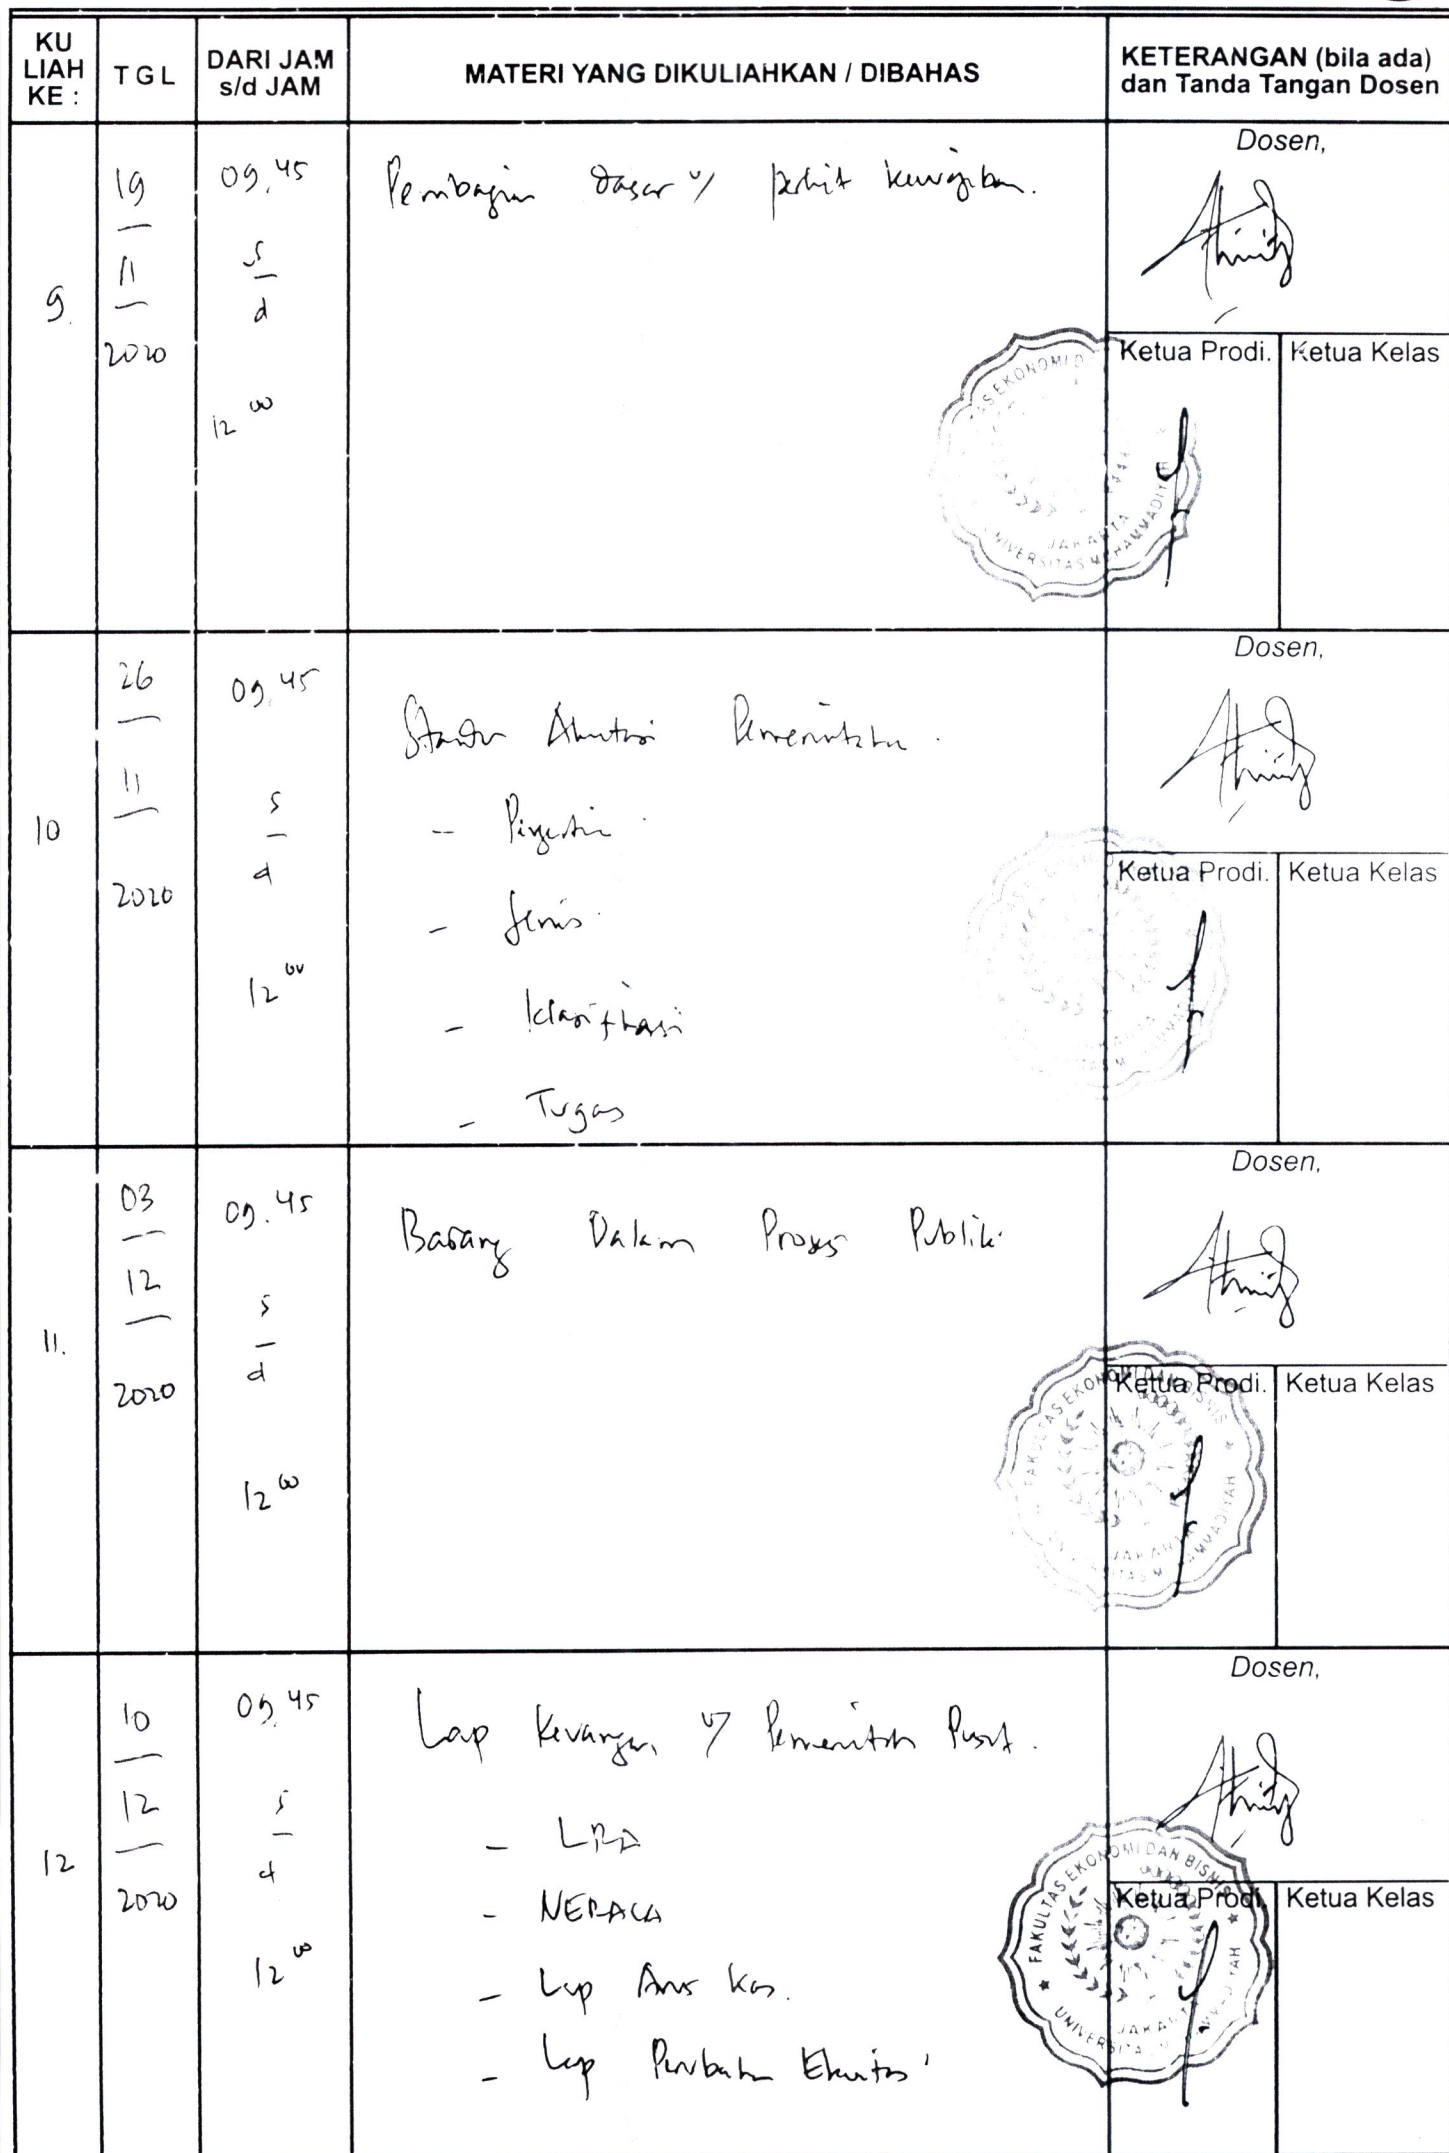 KU LIAH KE :
TGL
DARI JAM s/d JAM
MATERI YANG DIKULIAHKAN / DIBAHAS
KETERANGAN (bila ada) dan Tanda Tangan Dosen
9.
19
11
2020
09.45
s
d
12 00
Dosen,
Ketua Prodi.
Ketua Kelas
JAKARTA
10
26
11
2020
09.45
s
d
12 00
Standar Akuntansi Pemerintahan.
- Pengertian
- Jenis
- Klasifikasi
- Tugas
Dosen,
Ketua Prodi.
Ketua Kelas
11.
03
12
2020
09.45
s
d
12 00
Barang Dalam Proses Publik
Dosen,
Ketua Prodi.
Ketua Kelas
FAKULTAS EKONOMI DAN BISNIS
12
10
12
2020
09.45
s
d
12 00
Lap Keuangan u/ Pemerintah Pusat.
- LRA
- NERACA
- Lap Arus Kas.
- Lap Perubahan Ekuitas
Dosen,
Ketua Prodi.
Ketua Kelas
FAKULTAS EKONOMI DAN BISNIS